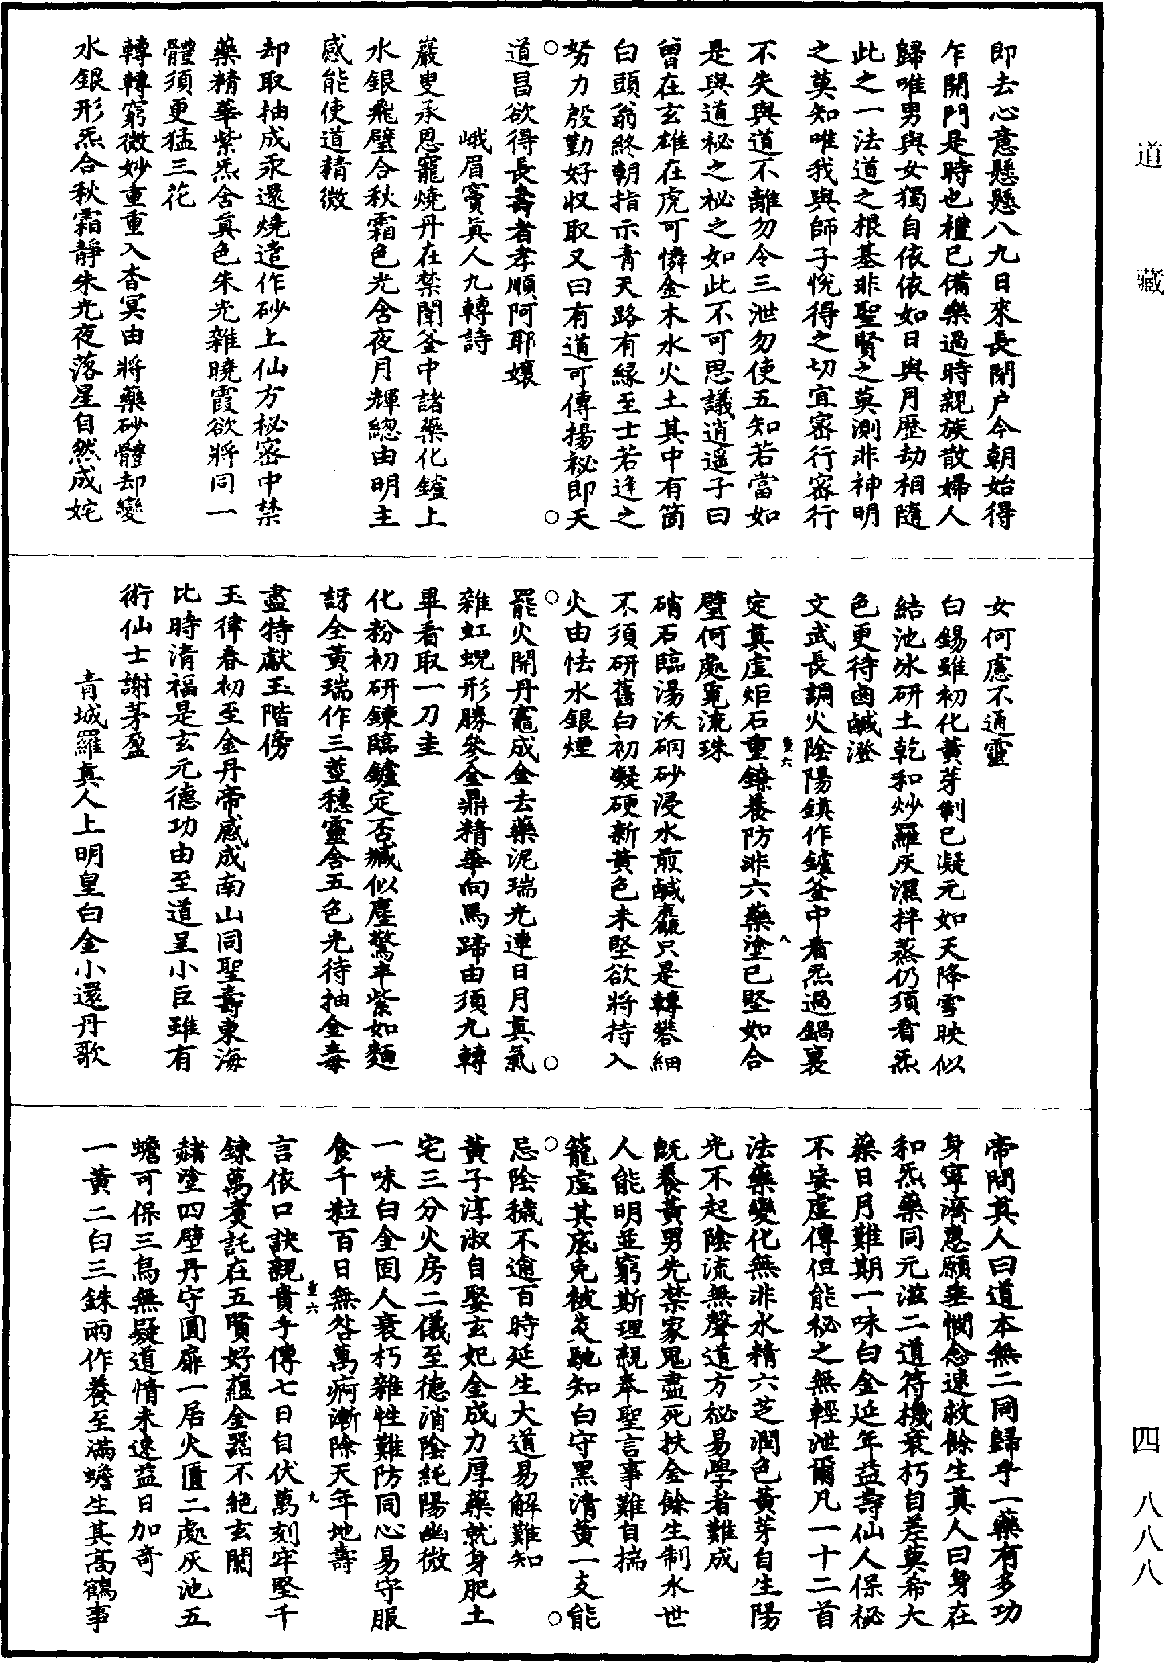 道藏
四 八八八
即去心意懸懸八九日來長閉户今朝始得
乍開門是時也禮已備樂過時親族散婦人
歸唯男與女獨自依依如日與月歷劫相隨
此之一法道之根基非聖賢之莫測非神明
之莫知唯我與師子悅得之切宜密行密行
不失與道不離勿令三泄勿使五知若當如
是與道秘之秘之如此不可思議逍遥子曰
曾在玄雄在虎可憐金木水火土其中有箇
白頭翁終朝指示青天路有緣至士若逢之
努力殷勤好収取又曰有道可傳揚袐即天
道昌欲得長壽者孝順阿耶孃
峨眉竇真人九轉詩
巖叟承恩寵燒丹在禁闈釜中諸藥化鑪上
水銀飛璧合秋霜色光含夜月輝緫由明主
感能使道精微
却取抽成汞還燒造作砂上仙方秘密中禁
藥精華紫炁含真色朱光雜曉霞欲將同一
體須更猛三花
轉轉窮微妙重重入杳冥由將藥砂體却變
水銀形炁合秋霜靜朱光夜落星自然成姹
女何慮不通靈
白錫雖初化黄芽制已凝元如天降雪映似
結池冰研土乾和炒羅灰濕拌蒸仍須看炁
色更待鹵鹹澄
文武長調火陰陽鎮作鑪釜中看炁過鍋裏
定真虚炬石重鐐養防非六藥塗已堅如合
璧何處覓流珠
硝石臨湯沃硇砂浸水煎鹹麤只是轉礬細
不須研舊白初凝硬新黄色未堅欲將持入
火由怯水銀煙
罷火開丹竈成金去藥泥瑞光連日月真氣
雜虹蜺形勝參金鼎精華向馬蹄由須九轉
畢看取一刀圭
化粉初研鍊臨鑪定否臧似塵驚率紫如麵
訝全黄瑞作三莖穗靈含五色光待抽金毒
盡特獻玉階傍
玉律春初至金丹帝感成南山同聖壽東海
比時清福是玄元德功由至道呈小臣雖有
術仙士謝茅盈
青城羅真人上明皇白金小還丹歌
帝問真人曰道本無二同歸乎一藥有多功
身寧濟惠願垂憫念速救餘生真人曰身在
和炁藥同元滋二道符機衰朽自差莫希大
藥日月難期一味白金延年益壽仙人保秘
不妄虚傳但能秘之無輕泄爾凡一十二首
法藥變化無非水精六芝潤色黄芽自生陽
光不起陰流無聲道方秘易學者難成
旣養黄男先禁家鬼盡死扶金餘生制水世
人能明並窮斯理親奉聖言事難自揣
籠虚其底免被炎馳知白守黑清黄一支能
忌陰穢不逾百時延生大道易解難知
黄子淳淑自娶玄妃金成力厚藥就身肥土
宅三分火房二儀至德消陰純陽幽微
一味白金固人衰朽雜性難防同心易守服
食千粒百日無咎萬痾漸除天年地壽
言依口訣親貴手傳七日自伏萬刻牢堅千
錬萬賓託在五賢好蘊金器不絶玄關
赭塗四壁丹守圓扉一居火匱二處灰池五
蟾可保三烏無疑道情未速益日加奇
一黄二白三銖兩作養至滿蟾生其髙鶴事